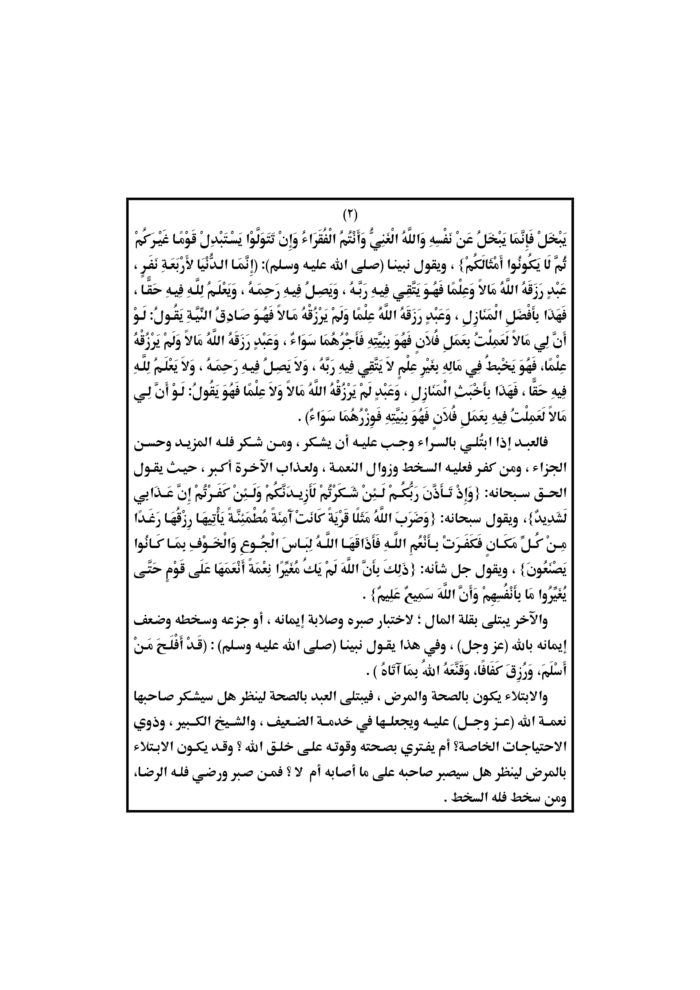 (٢)
يَبْخَلْ فَإِنَّمَا يَبْخَلُ عَنْ نَفْسِهِ وَاللَّهُ الْغَنِيُّ وَأَنْتُمُ الْفُقَرَاءُ وَإِنْ تَتَوَلَّوْا يَسْتَبْدِلْ قَوْمًا غَيْرَكُمْ
ثُمَّ لَا يَكُونُوا أَمْثَالَكُمْ} ، ويقول نبينا (صلى الله عليه وسلم): (إِنَّمَا الدُّنْيَا لأَرْبَعَةِ نَفَرٍ ،
عَبْدٍ رَزَقَهُ اللَّهُ مَالاً وَعِلْمًا فَهُوَ يَتَّقِي فِيهِ رَبَّهُ ، وَيَصِلُ فِيهِ رَحِمَهُ ، وَيَعْلَمُ لِلَّهِ فِيهِ حَقًّا ،
فَهَذَا بِأَفْضَلِ الْمَنَازِلِ ، وَعَبْدٍ رَزَقَهُ اللَّهُ عِلْمًا وَلَمْ يَرْزُقْهُ مَالاً فَهُوَ صَادِقُ النِّيَّةِ يَقُولُ: لَوْ
أَنَّ لِي مَالاً لَعَمِلْتُ بِعَمَلِ فُلاَنٍ فَهُوَ بِنِيَّتِهِ فَأَجْرُهُمَا سَوَاءٌ ، وَعَبْدٍ رَزَقَهُ اللَّهُ مَالاً وَلَمْ يَرْزُقْهُ
عِلْمًا، فَهُوَ يَخْبِطُ فِي مَالِهِ بِغَيْرِ عِلْمٍ لاَ يَتَّقِي فِيهِ رَبَّهُ ، وَلاَ يَصِلُ فِيهِ رَحِمَهُ ، وَلاَ يَعْلَمُ لِلَّهِ
فِيهِ حَقًّا ، فَهَذَا بِأَخْبَثِ الْمَنَازِلِ ، وَعَبْدٍ لَمْ يَرْزُقْهُ اللَّهُ مَالاً وَلاَ عِلْمًا فَهُوَ يَقُولُ: لَوْ أَنَّ لِي
مَالاً لَعَمِلْتُ فِيهِ بِعَمَلِ فُلاَنٍ فَهُوَ بِنِيَّتِهِ فَوِزْرُهُمَا سَوَاءٌ) .
فالعبد إذا ابتُلي بالسراء وجب عليه أن يشكر ، ومن شكر فله المزيد وحسن
الجزاء ، ومن كفر فعليه السخط وزوال النعمة ، ولعذاب الآخرة أكبر ، حيث يقول
الحق سبحانه: {وَإِذْ تَأَذَّنَ رَبُّكُمْ لَئِنْ شَكَرْتُمْ لَأَزِيدَنَّكُمْ وَلَئِنْ كَفَرْتُمْ إِنَّ عَذَابِي
لَشَدِيدٌ}، ويقول سبحانه: {وَضَرَبَ اللَّهُ مَثَلًا قَرْيَةً كَانَتْ آمِنَةً مُطْمَئِنَّةً يَأْتِيهَا رِزْقُهَا رَغَدًا
مِنْ كُلِّ مَكَانٍ فَكَفَرَتْ بِأَنْعُمِ اللَّهِ فَأَذَاقَهَا اللَّهُ لِبَاسَ الْجُوعِ وَالْخَوْفِ بِمَا كَانُوا
يَصْنَعُونَ} ، ويقول جل شأنه: {ذَلِكَ بِأَنَّ اللَّهَ لَمْ يَكُ مُغَيِّرًا نِعْمَةً أَنْعَمَهَا عَلَى قَوْمٍ حَتَّى
يُغَيِّرُوا مَا بِأَنْفُسِهِمْ وَأَنَّ اللَّهَ سَمِيعٌ عَلِيمٌ} .
والآخر يبتلى بقلة المال ؛ لاختبار صبره وصلابة إيمانه ، أو جزعه وسخطه وضعف
إيمانه بالله (عز وجل) ، وفي هذا يقول نبينا (صلى الله عليه وسلم) : (قَدْ أَفْلَحَ مَنْ
أَسْلَمَ، وَرُزِقَ كَفَافًا، وَقَنَّعَهُ اللهُ بِمَا آتَاهُ ) .
والابتلاء يكون بالصحة والمرض ، فيبتلى العبد بالصحة لينظر هل سيشكر صاحبها
نعمة الله (عز وجل) عليه ويجعلها في خدمة الضعيف ، والشيخ الكبير ، وذوي
الاحتياجات الخاصة؟ أم يفتري بصحته وقوته على خلق الله ؟ وقد يكون الابتلاء
بالمرض لينظر هل سيصبر صاحبه على ما أصابه أم لا ؟ فمن صبر ورضي فله الرضا،
ومن سخط فله السخط .